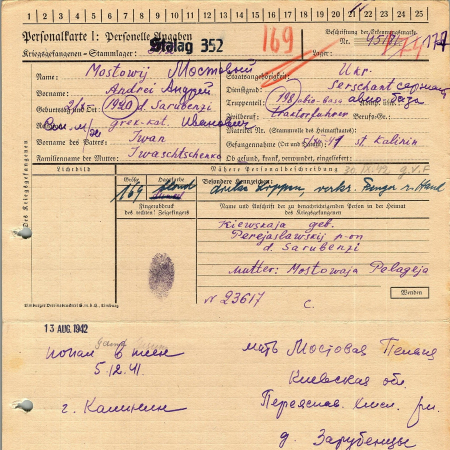 1 2 3 4 5 6 7 8 9 10 11 12 13 14 15 16 17 18 19 20 21 22 23 24 25
Personalkarte I: Personelle Angaben
Kriegsgefangenen-Stammlager: Stalag 352
169
Beschriftung der Erkennungsmarke
Nr.
Lager:
Name: Mostowij Мостовый
Vorname: Andrei Андрей
Geburtstag und -ort: 1920 d. Sarubenzi
grek-kat. Иванович
Vorname des Vaters: Iwan
Familienname der Mutter: Iwaschtschenko
Staatsangehörigkeit: Ukr.
Dienstgrad: Serschant сержант
Truppenteil: 198 авиа база
Zivilberuf: traktorfuhrer Berufs-Gr.:
Matrikel Nr. (Stammrolle des Heimatstaates):
Gefangennahme (Ort und Datum): st Kalinin
Ob gesund, krank, verwundet, eingeliefert:
Des Kriegsgefangenen
Lichtbild
Nähere Personalbeschreibung
Größe Haarfarbe Besondere Kennzeichen:
169 blond
Fingerabdruck
des rechten! Zeigefingers
Name und Anschrift der zu benachrichtigenden Person in der Heimat
des Kriegsgefangenen
Kiewskaja geb.
Perejaslawskij p-on
d. Sarubenzi
Mutter: Mostowaja Palageja
Wenden
№ 23617 C.
13 AUG. 1942
попал в плен
5/2.41.
г. Калинин
мать Мостовая Пелагея
Киевская обл.
Переяслав. Хмел. рн.
д. Зарубенцы